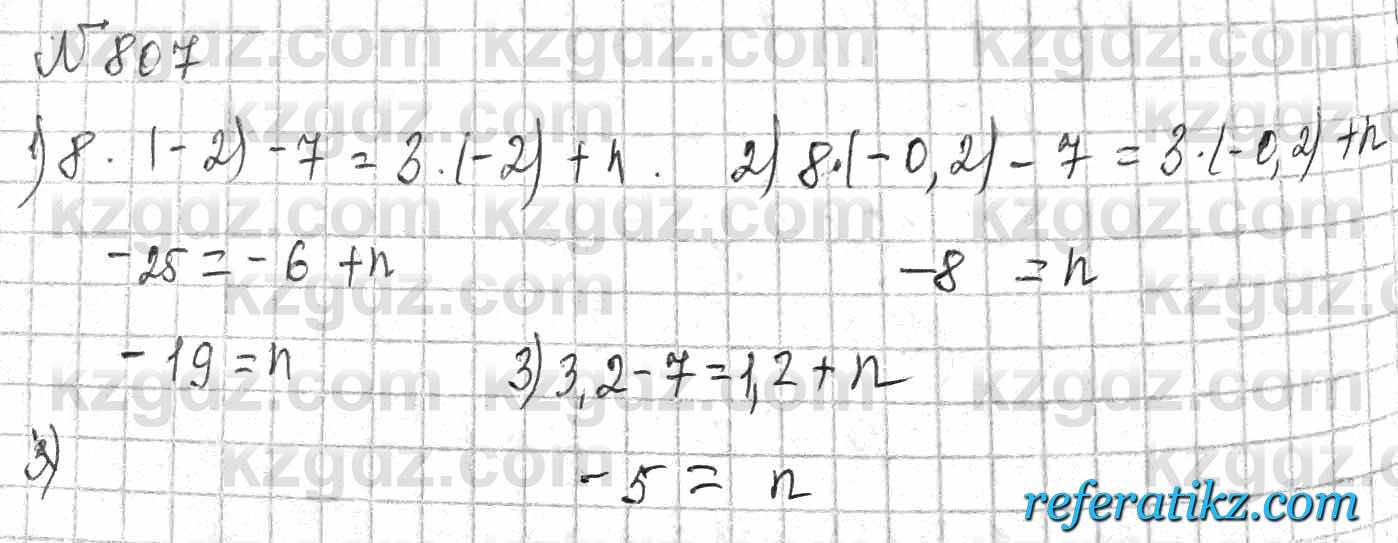 № 807
kzgdz.com kzgdz.com kzgdz.com
1) 8 · (-2) - 7 = 3 · (-2) + n . 2) 8 · (-0,2) - 7 = 3 · (-0,2) + n
kzgdz.com kzgdz.com
kzgdz.com kzgdz.com kzgdz.com
-25 = -6 + n -8 = n
kzgdz.com kzgdz.com
-19 = n 3) 3,2 - 7 = 1,2 + n
kzgdz.com kzgdz.com kzgdz.com
3) -5 = n
kzgdz.com kzgdz.com
referatikz.com